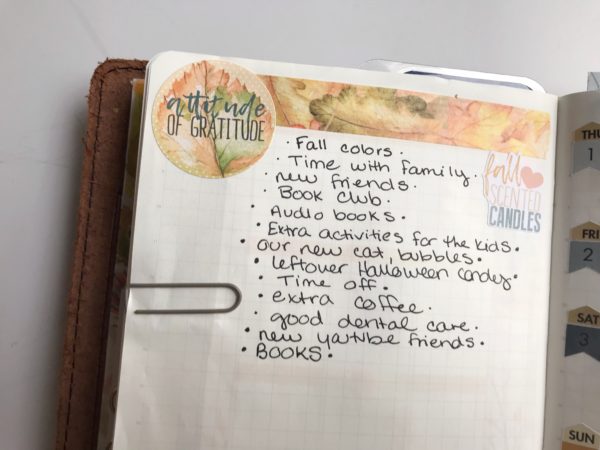 attitude
OF GRATITUDE
· Fall colors.
· Time with Family.
· new friends.
· Book club.
· Audio books.
· Extra activities for the kids.
· our new cat, bubbles.
· leftover Halloween candy.
· Time off.
· extra coffee.
· good dental care.
· new yatube friends.
· BOOKS.
fall
SCENTED
CANDLES
THU
1
FRI
2
SAT
3
SUN